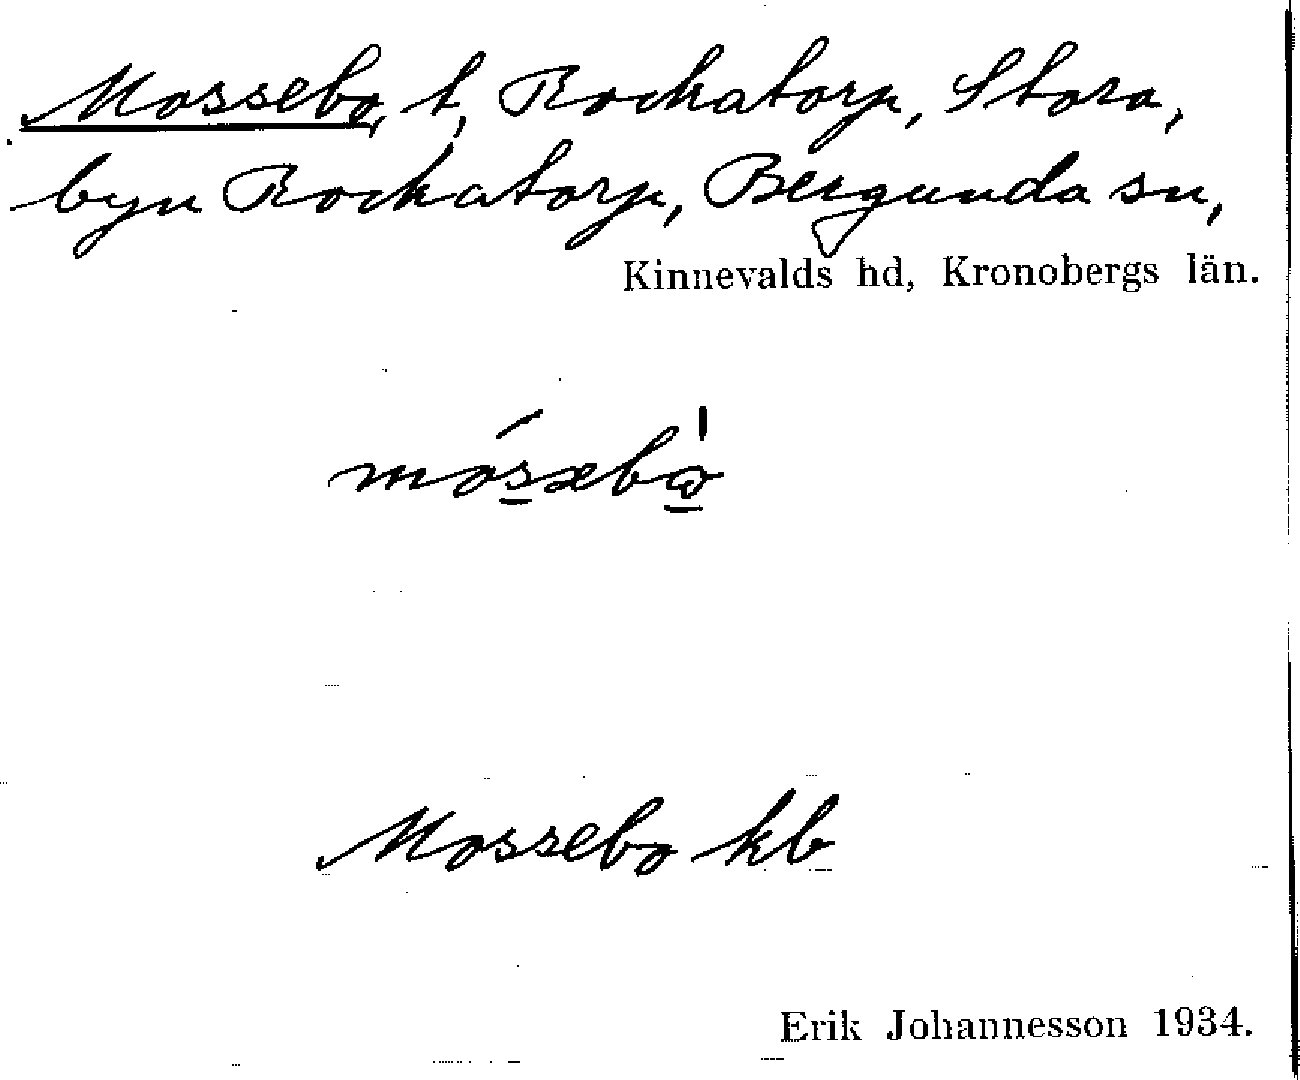 Mossebo, t, Rockatorp, Stora,
byn Rockatorp, Bergunda sn,
Kinnevalds hd, Kronobergs län.
Mossebo kb
Erik Johannesson 1934.